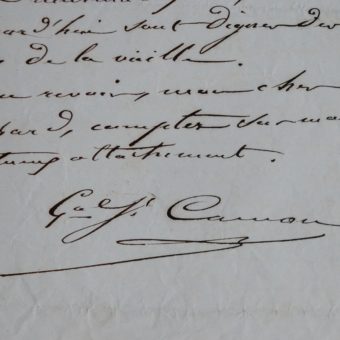 ard'hui sont dignes de
de la vieille.
revoir, mon cher
ard, comptez sur mon
attachement.
Gal Jh Camou